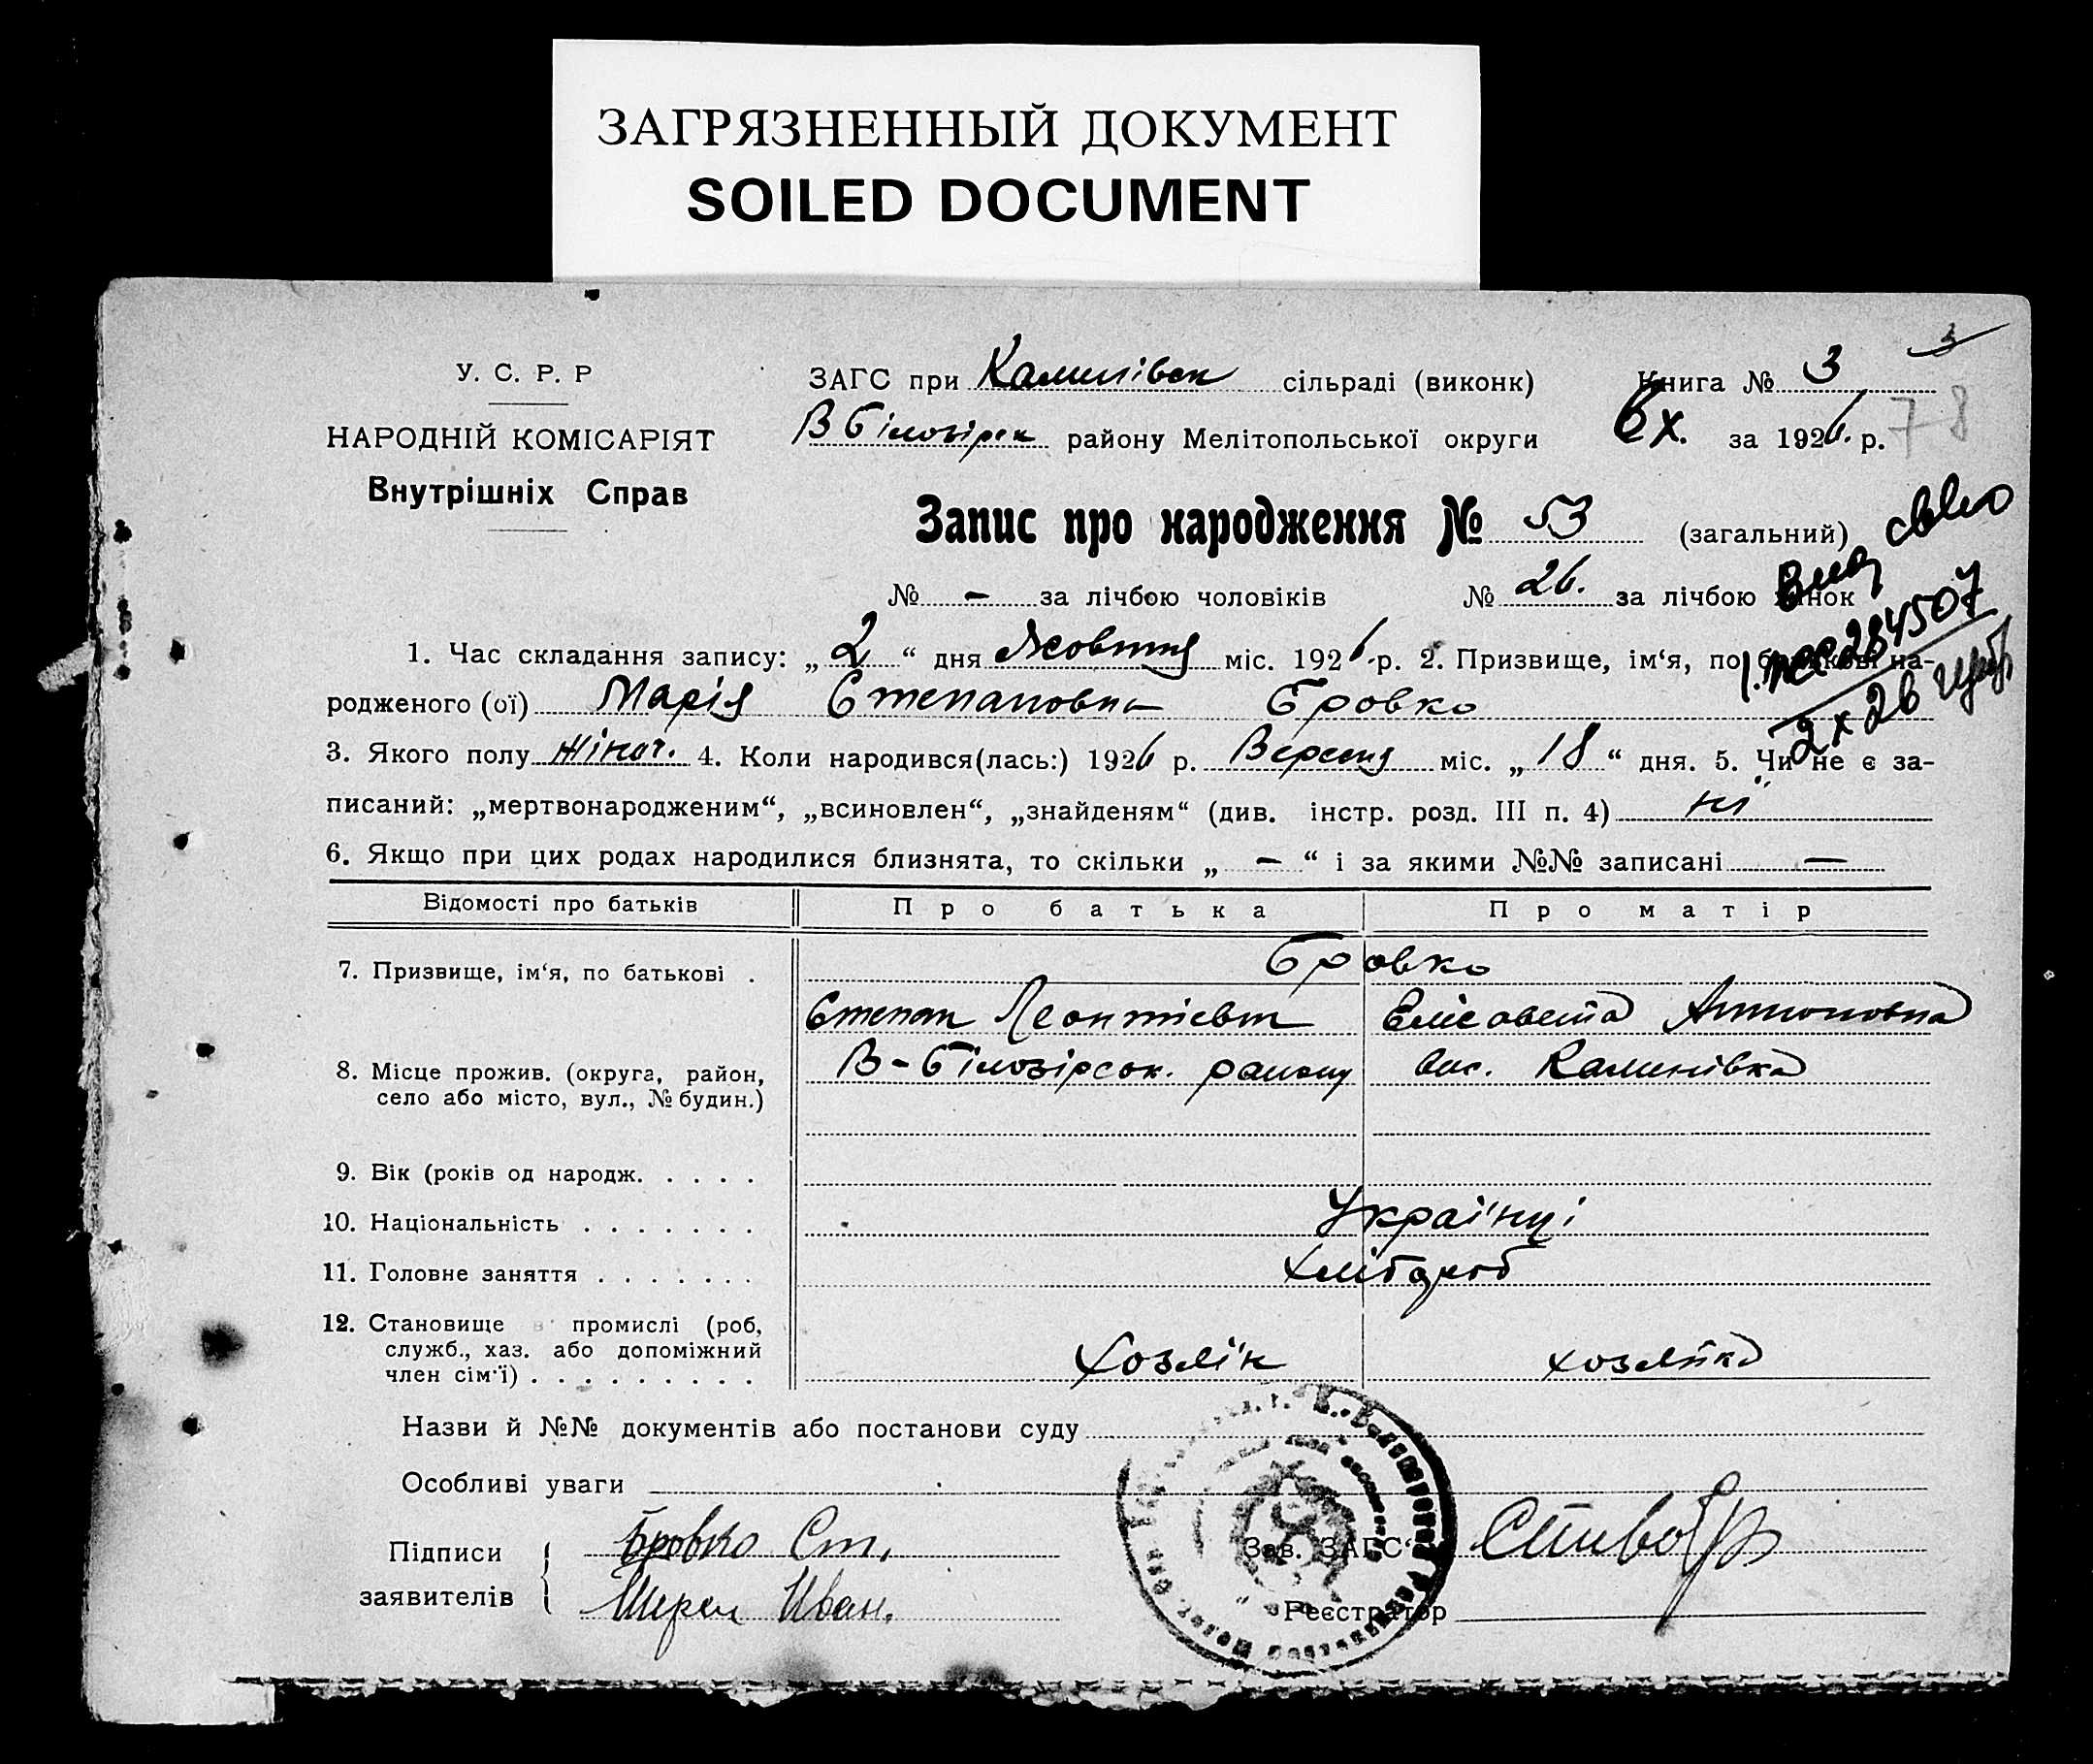 ЗАГРЯЗНЕННЫЙ ДОКУМЕНТ
SOILED DOCUMENT
3
У. С. Р. Р
НАРОДНІЙ КОМІСАРІЯТ
Внутрішніх Справ
ЗАГС при Калинівск сільраді (виконк) Книга № 3
В Білозірск району Мелітопольської округи за 1926. р. 78
Запис про народження № 53 (загальний)
№ - за лічбою чоловіків № 26. за лічбою жінок
1. Час складання запису: „2“ дня Жовтня міс. 1926 р. 2. Призвище, ім‘я, по батькові на-
родженого (ої) Марія Степановна Бровко
3. Якого полу жіноч. 4. Коли народився(лась:) 1926 р. Вересня міс. „18“ дня. 5. Чи не є за-
писаний: „мертвонародженим“, „всиновлен“, „знайденям“ (див. інстр. розд. III п. 4) ні
6. Якщо при цих родах народилися близнята, то скільки „-“ і за якими №№ записані —
Відомості про батьків Про батька Про матір
7. Призвище, ім‘я, по батькові . Бровко
Степан Леонтієвич Елісавета Антоновна
8. Місце прожив. (округа, район, В-Білозірсок. району вис. Калинівка
село або місто, вул., № будин.)
9. Вік (років од народж. . . . .
10. Національність . . . . . . . Українці
11. Головне заняття . . . . . . . Хлібороб
12. Становище в промислі (роб,
служб., хаз. або допоміжний Хозяїн хозяйка
член сім‘ї) . . . . . . . . .
Назви й №№ документів або постанови суду
Особливі уваги
Підписи Бровко Ст. Зав. ЗАГС‘у
заявителів Иван. Реєстратор